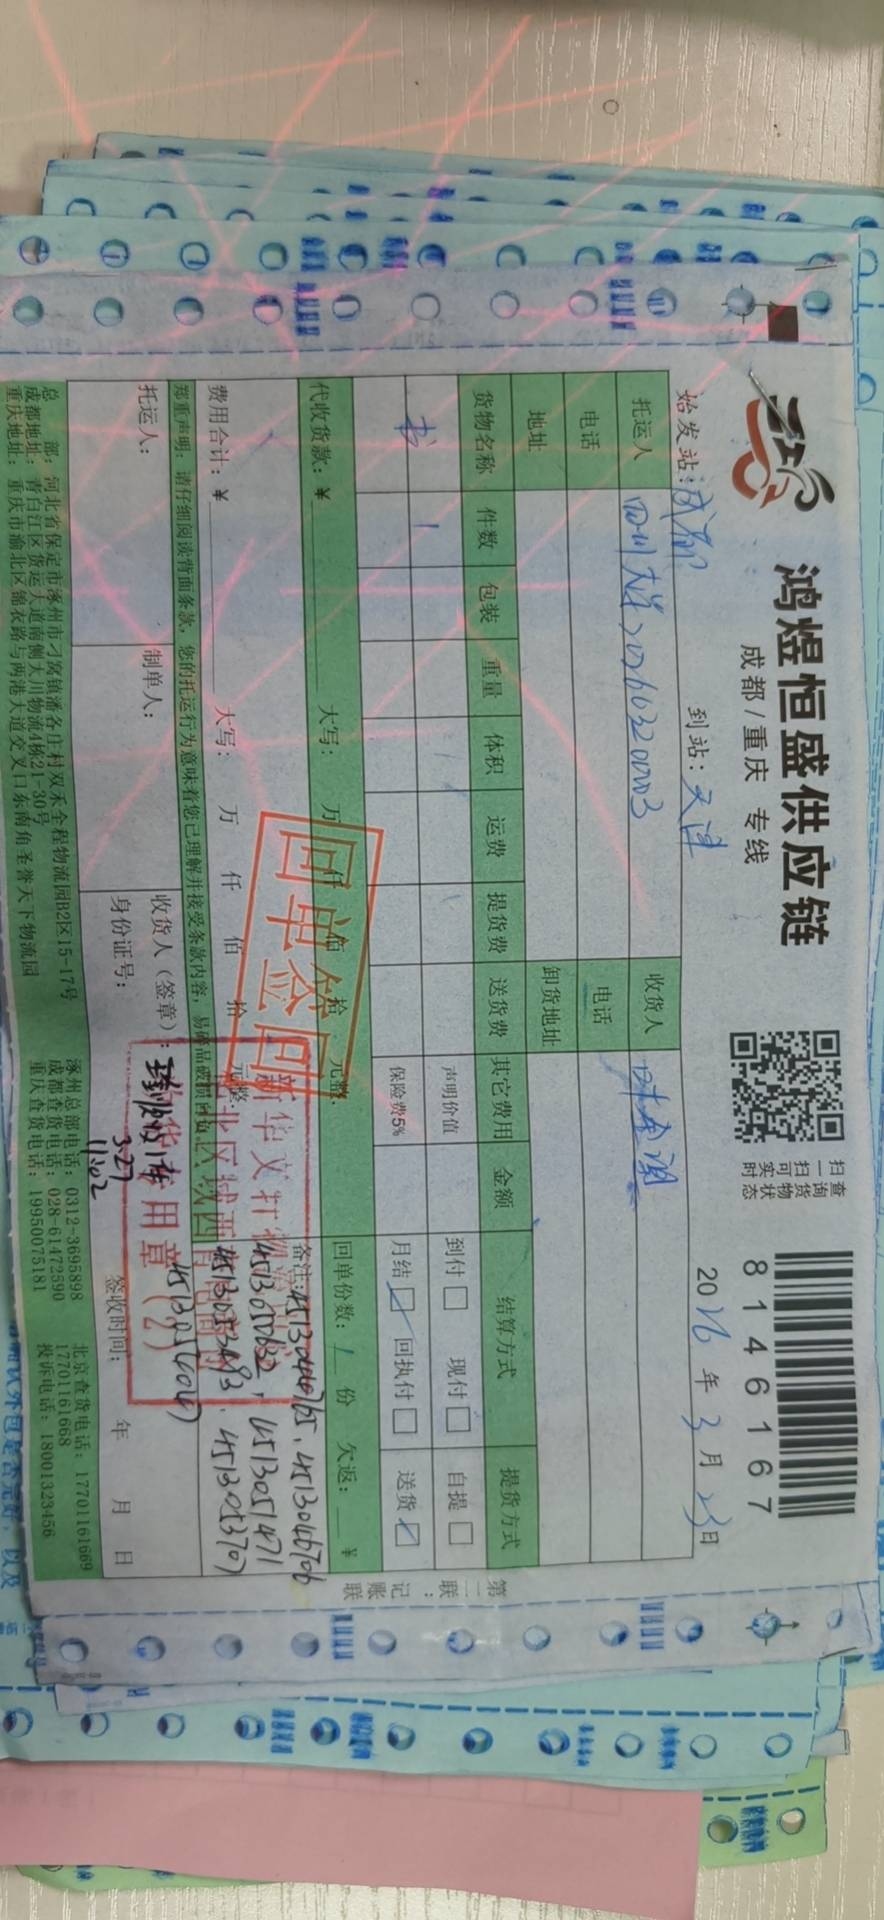 鸿煜恒盛供应链
成都/重庆 专线
扫一扫可实时
查询货物状态
8146167
始发站：成都
到站：天津
2026年3月23日
托运人
收货人
电话
电话
地址
卸货地址
结算方式
提货方式
货物名称 件数 包装 重量 体积 运费 提货费 送货费 其它费用 金额
书 1
声明价值
到付□ 现付□ 自提□
保险费5%
月结☑ 回执付□ 送货☑
代收货款：¥ 大写： 万 仟 佰 拾 元整.
回单份数：1 份 欠返： ¥
费用合计：¥ 大写： 万 仟 佰 拾 元整.
备注：
4513046706
4513051471
4513053493、4513053707
郑重声明：请仔细阅读背面条款，您的托运行为意味着您已理解并接受条款内容；易碎品破损自负。
托运人：
制单人：
收货人（签章）：
身份证号：
3.27
11:02
签收时间： 年 月 日
回单签回
专用章（2）
总 部：河北省保定市涿州市刁窝镇潘各庄村双禾全程物流园B2区15-17号
成都地址：青白江区货运大道南侧大川物流4栋21-30号
重庆地址：重庆市渝北区锦衣路与两港大道交叉口东南角圣誉天下物流园
涿州总部电话：0312-3695898
成都查货电话：028-61472590
重庆查货电话：19950075181
北京查货电话：17701161669
17701161668
投诉电话：18001323456
第二联：记账联